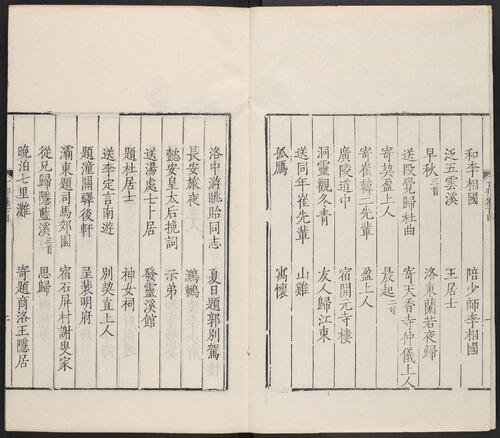 和李相國 陪少師李相國
泛五雲溪 王居士
早秋三首 洛東蘭若夜歸
送段覺歸杜曲 寄天香寺仲儀上人
寄契盈上人 晨起二首
寄崔韓二先輩 盈上人
廣陵道中 宿開元寺樓
洞靈觀冬青 友人歸江東
送同年崔先輩 山雞
孤鴈 寓懷
洛中游眺貽同志 夏日題郭別駕
長安旅夜 鸂鶒
懿安皇太后挽詞 示弟
送湯處士卜居 發靈溪館
題杜居士 神女祠
送李定言南遊 別契直上人
題潼關驛後軒 呈裴明府
灞東題司馬郊園 宿石屏村謝叟家
從兄歸隱藍溪三首 思歸
晚泊七里灘 寄題商洛王隱居